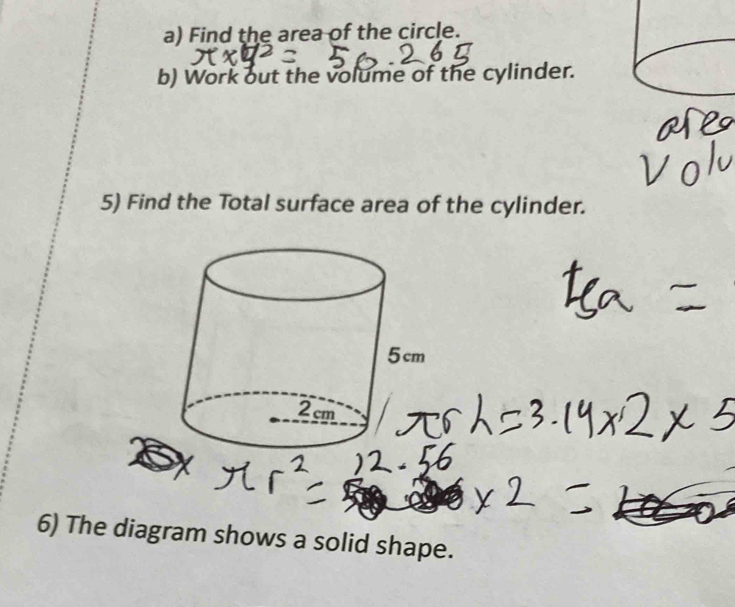 a) Find the area of the circle.
π×4² = 50.265
b) Work out the volume of the cylinder.
area
Volu
5) Find the Total surface area of the cylinder.
tsa =
5 cm
2 cm
πrh=3.14×2×5
πr² = 12.56 ×2 =
6) The diagram shows a solid shape.